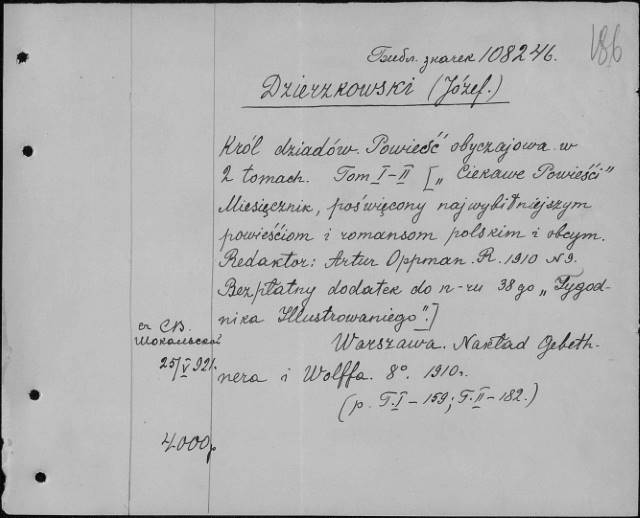 186
Библ. значек 108246.
Dzierzkowski (Józef.)
Król dziadów. Powieść obyczajowa w
2 tomach. Tom I-II [„Ciekawe Powieści"
Miesięcznik, poświęcony najwybitniejszym
powieściom i romansom polskim i obcym.
Redaktor: Artur Oppman. R. 1910 N 9.
Bezpłatny dodatek do n-ru 38 go „Tygod-
nika Illustrowaniego".]
Warszawa. Nakład Gebeth-
nera i Wolffa. 8°. 1910 г.
(p. T. I – 159; T. II – 182.)
СВ.
Шокальской
25/V 921.
4000р